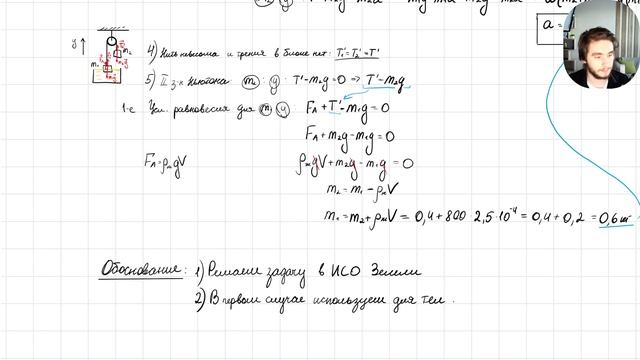 a =
y
m₂
m₁
4) Нить невесома и трения в блоке нет: T₁' = T₂' = T'
5) II з-н Ньютона: m₂: y: T' - m₂g = 0 ⇒ T' = m₂g
1-е Усл. равновесия для m₁ y: Fₐ + T' - m₁g = 0
Fₐ + m₂g - m₁g = 0
Fₐ = ρₓgV ρₓgV + m₂g - m₁g = 0
m₂ = m₁ - ρₓV
m₁ = m₂ + ρₓV = 0,4 + 800 · 2,5·10⁻⁴ = 0,4 + 0,2 = 0,6 кг
Обоснование: 1) Решаем задачу в ИСО Земли
2) В первом случае используем для тел.